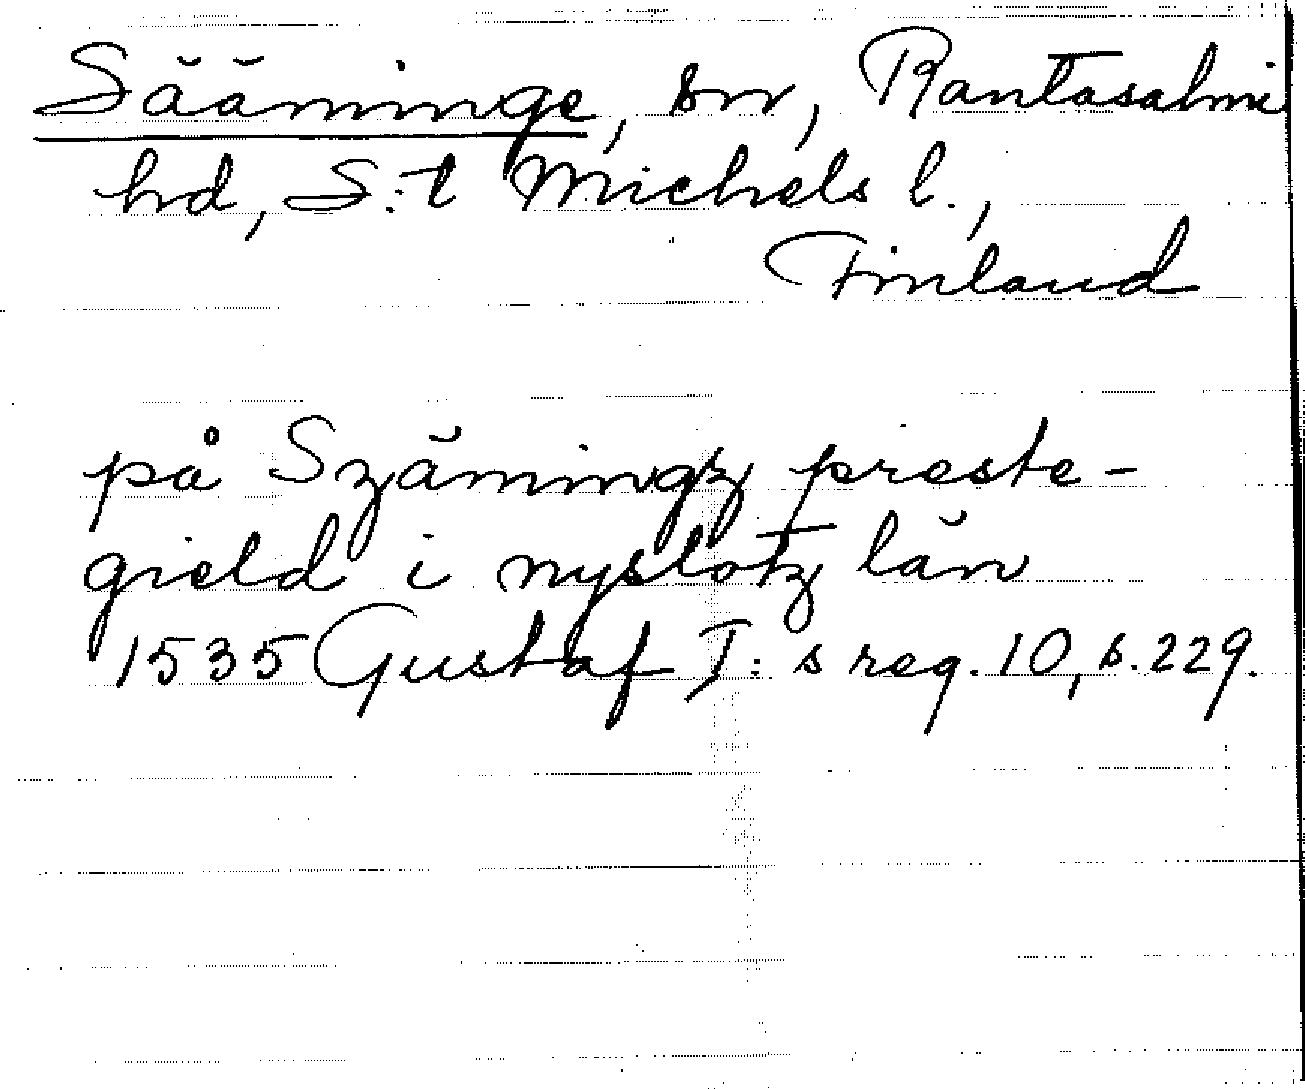 Sääminge, sn, Rantasalmi
hd, S:t Michels l.,
Finland
på Szämingz preste-
gield i nyslotz län
1535 Gustaf I:s reg. 10, s. 229.